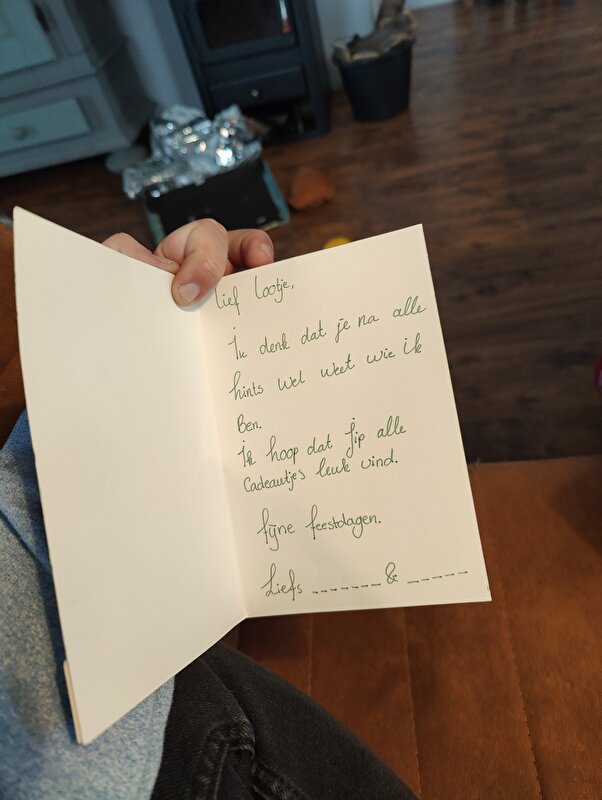 Lief Lootje,
Ik denk dat je na alle
hints wel weet wie ik
Ben.
Ik hoop dat Jip alle
Cadeautjes leuk vind.
Fijne feestdagen.
Liefs ------- & -----